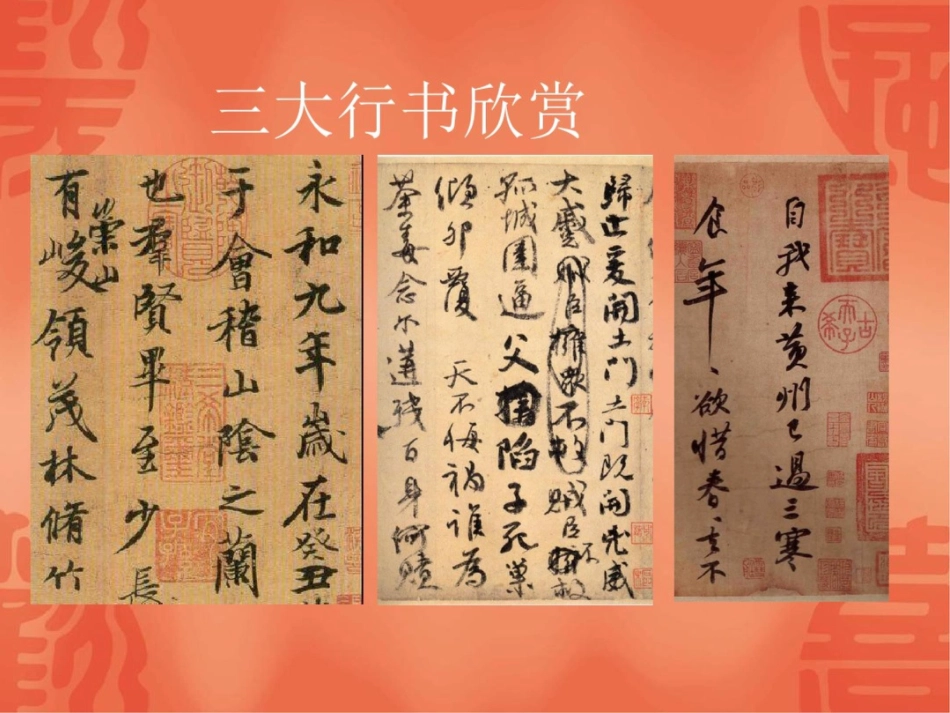 三大行书欣赏
永和九年歲在癸丑
于會稽山陰之蘭
也羣賢畢至少長
有崇山峻領茂林脩竹
歸止爰開土門土門既開兇威
大蹙賊臣擁衆不救賊臣不救
孤城圍逼父陷子死巢
傾卵覆天不悔禍誰為
荼毒念爾遘殘百身何贖
自我來黃州已過三寒
食年〻欲惜春〻去不
古希天子